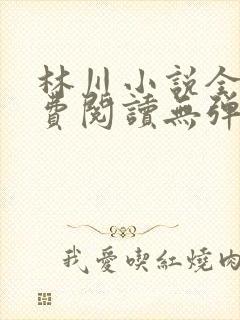 林川小说全
費閱讀無彈
我愛喫紅燒肉